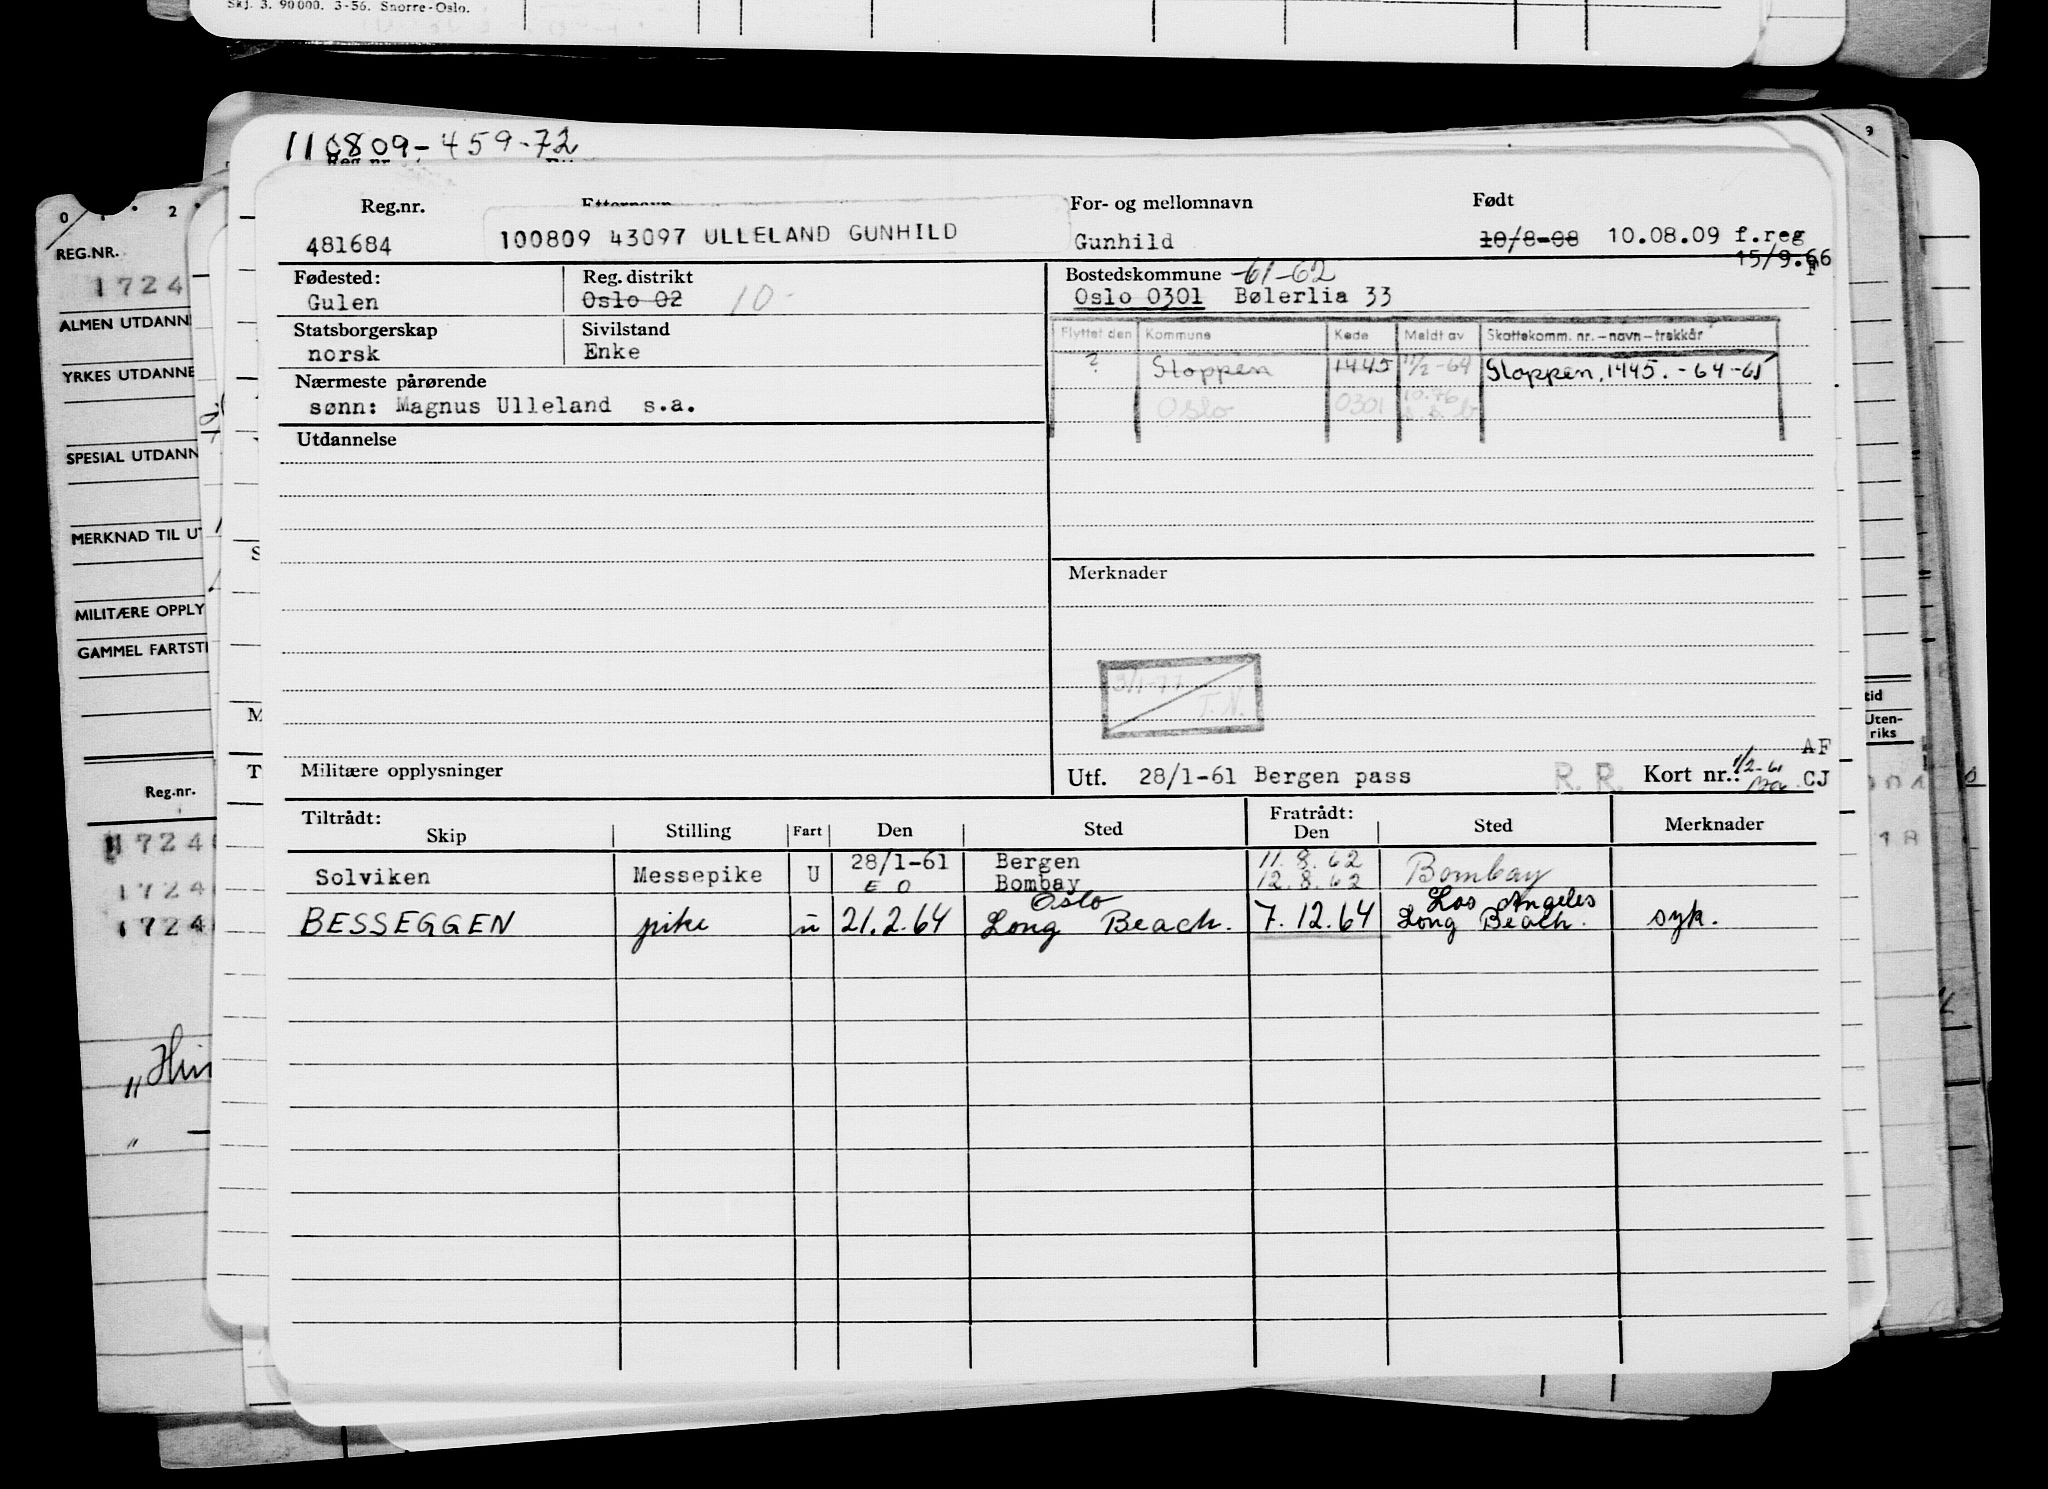 Skj. 3. 90000. 3-56. Snorre-Oslo.
110809-459-72
Reg.nr.
0 1 2
9
REG.NR.
1724
ALMEN UTDANN
YRKES UTDANNE
SPESIAL UTDANN
MERKNAD TIL UT
MILITÆRE OPPLY
GAMMEL FARTST
Reg.nr.
1724
1724
1724
„Hin
"
Reg.nr. Etternavn For- og mellomnavn Født
481684 100809 43097 ULLELAND GUNHILD Gunhild 10/8-08 10.08.09 f.reg
15/9.66
Fødested: Reg. distrikt Bostedskommune -61-62 F
Gulen Oslo 02 10- Oslo 0301 Bølerlia 33
Statsborgerskap Sivilstand
norsk Enke
Flyttet den Kommune Kode Meldt av Skattekomm. nr.-navn-trekkår
? Gloppen 1445 11/2-64 Gloppen, 1445. -64-65
Oslo 0301
Nærmeste pårørende
sønn: Magnus Ulleland s.a.
Utdannelse
Merknader
3/1-77
T.N.
AF
Militære opplysninger Utf. 28/1-61 Bergen pass R. R. Kort nr.: 1/2-61 CJ
Tiltrådt: Fratrådt:
Skip Stilling Fart Den Sted Den Sted Merknader
28/1-61 Bergen 11.8.62
Solviken Messepike U E O Bombay 12.8.62 Bombay
Oslo Los Angeles
BESSEGGEN pike u 21.2.64 Long Beach. 7.12.64 Long Beach. syk.
tid
Uten-
riks